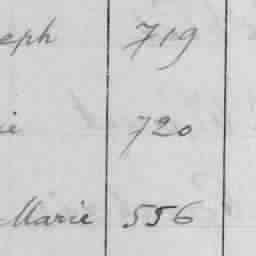 eph 719
ie 720
Marie 556